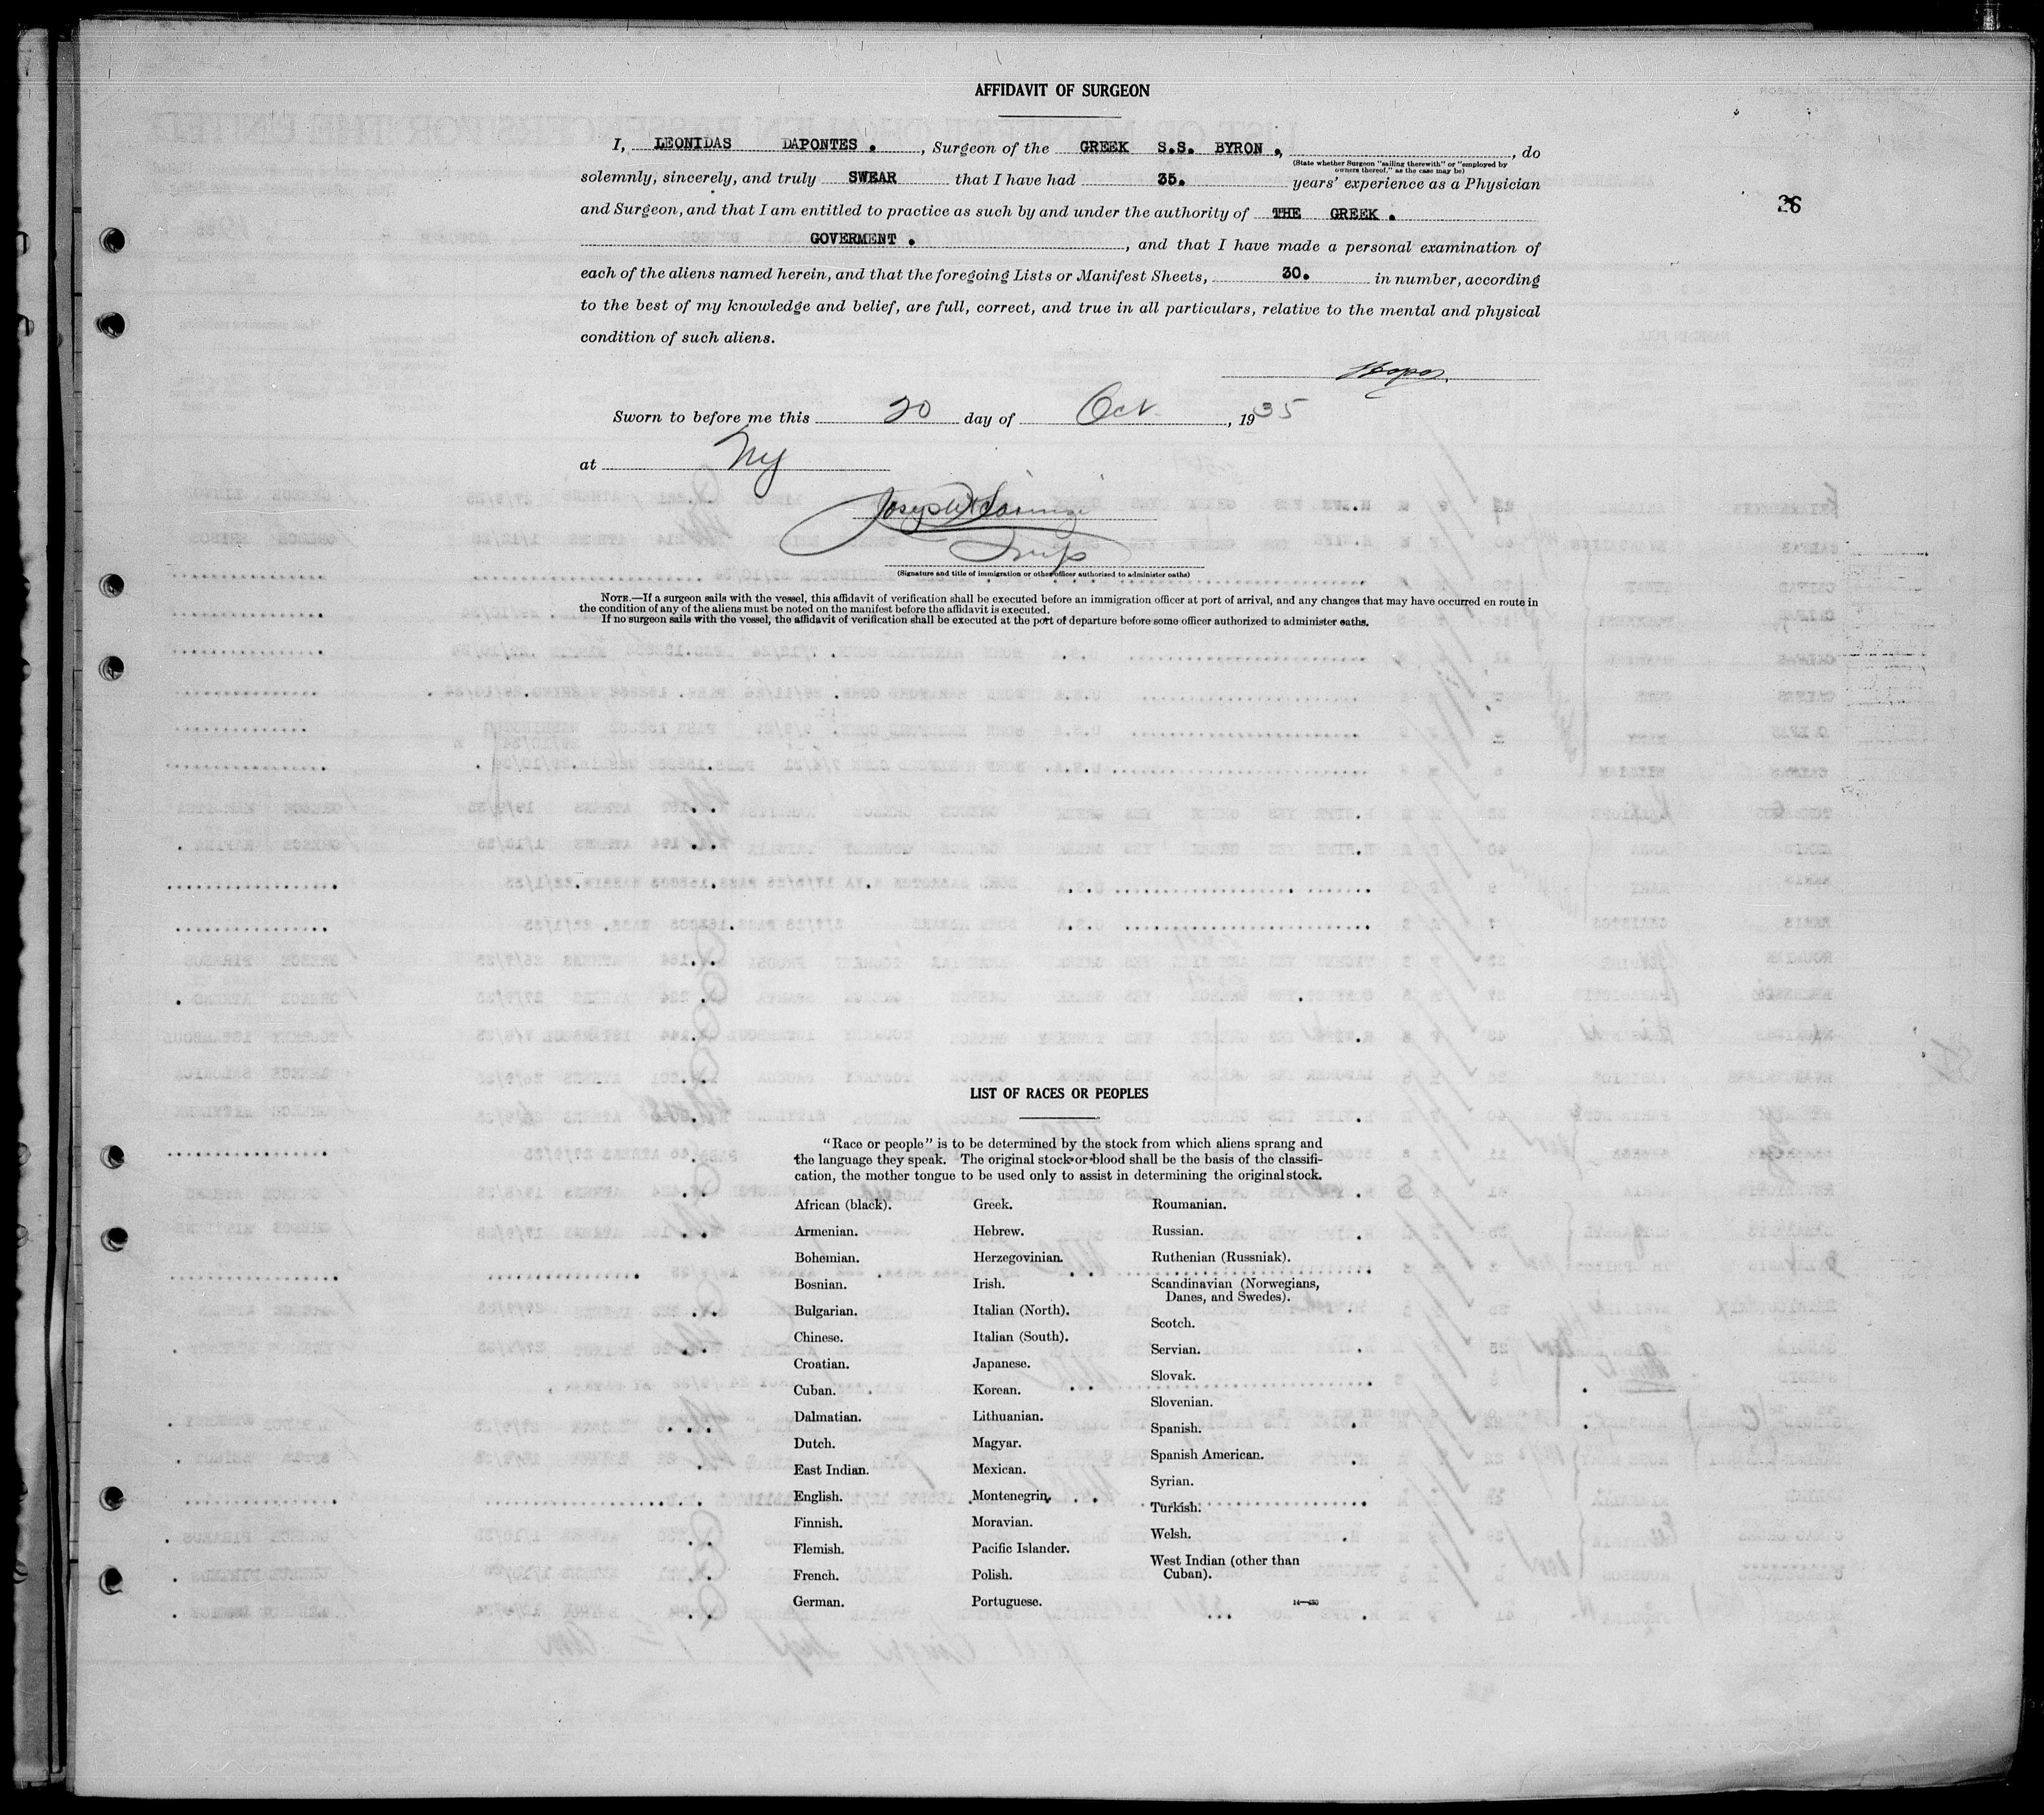 AFFIDAVIT OF SURGEON
I, LEONIDAS DAPONTES . , Surgeon of the GREEK S.S. BYRON . , , do
(State whether Surgeon "sailing therewith" or "employed by
owners thereof," as the case may be)
solemnly, sincerely, and truly SWEAR that I have had 35. years' experience as a Physician
26
and Surgeon, and that I am entitled to practice as such by and under the authority of THE GREEK .
GOVERMENT . , and that I have made a personal examination of
each of the aliens named herein, and that the foregoing Lists or Manifest Sheets, 30. in number, according
to the best of my knowledge and belief, are full, correct, and true in all particulars, relative to the mental and physical
condition of such aliens.
Sworn to before me this 20 day of Oct , 1935
at NY
Insp
(Signature and title of immigration or other officer authorized to administer oaths)
NOTE.—If a surgeon sails with the vessel, this affidavit of verification shall be executed before an immigration officer at port of arrival, and any changes that may have occurred en route in
the condition of any of the aliens must be noted on the manifest before the affidavit is executed.
If no surgeon sails with the vessel, the affidavit of verification shall be executed at the port of departure before some officer authorized to administer oaths.
LIST OF RACES OR PEOPLES
"Race or people" is to be determined by the stock from which aliens sprang and
the language they speak. The original stock or blood shall be the basis of the classifi-
cation, the mother tongue to be used only to assist in determining the original stock.
African (black).
Armenian.
Bohemian.
Bosnian.
Bulgarian.
Chinese.
Croatian.
Cuban.
Dalmatian.
Dutch.
East Indian.
English.
Finnish.
Flemish.
French.
German.
Greek.
Hebrew.
Herzegovinian.
Irish.
Italian (North).
Italian (South).
Japanese.
Korean.
Lithuanian.
Magyar.
Mexican.
Montenegrin.
Moravian.
Pacific Islander.
Polish.
Portuguese.
Roumanian.
Russian.
Ruthenian (Russniak).
Scandinavian (Norwegians,
Danes, and Swedes).
Scotch.
Servian.
Slovak.
Slovenian.
Spanish.
Spanish American.
Syrian.
Turkish.
Welsh.
West Indian (other than
Cuban).